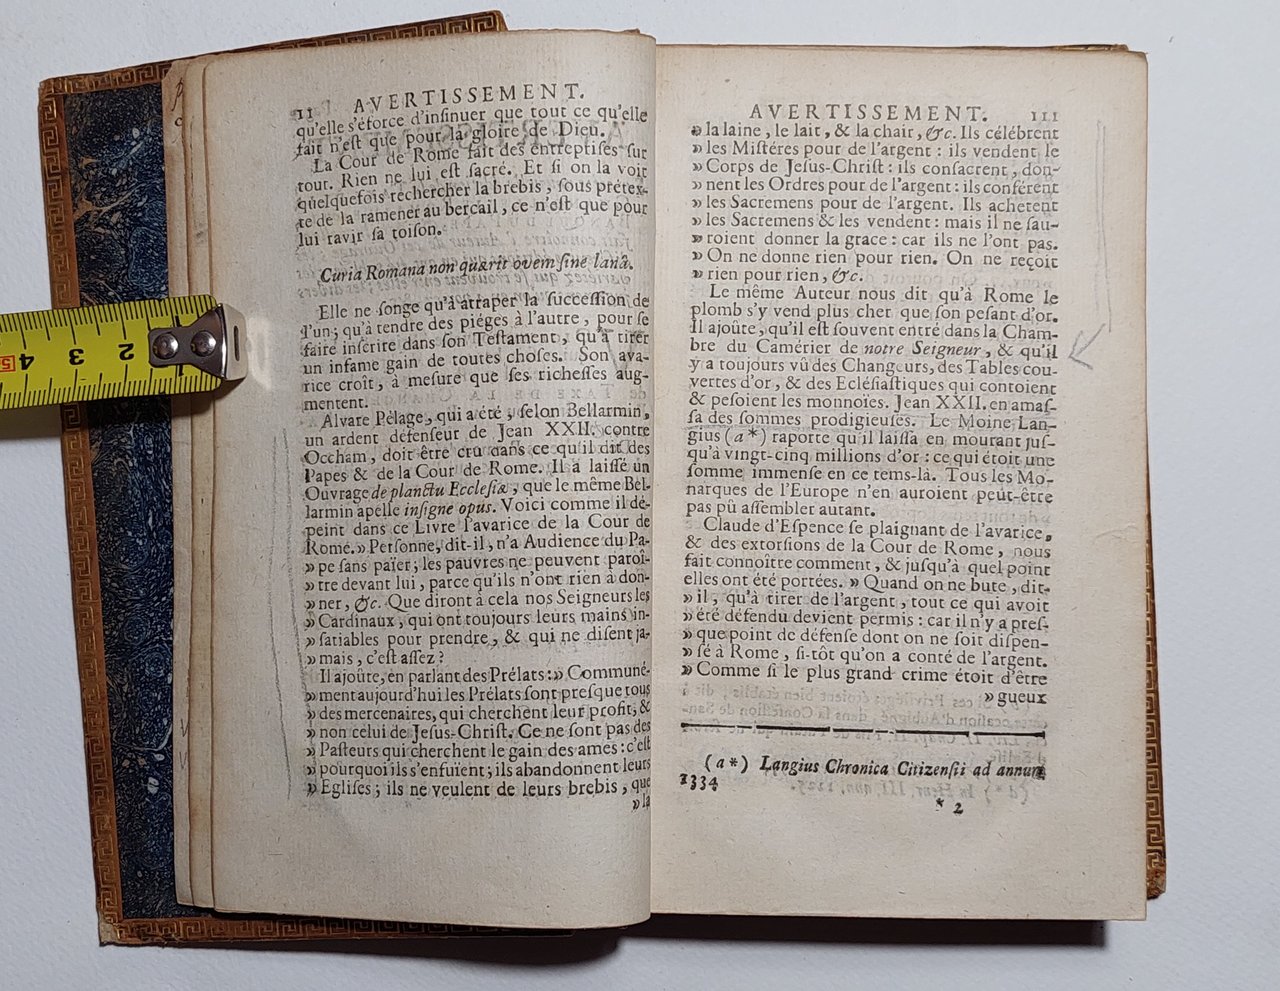 5 4 3 2
II AVERTISSEMENT.
qu'elle s'éforce d'inſinuer que tout ce qu'elle
fait n'eſt que pour la gloire de Dieu.
La Cour de Rome fait des entrepriſes ſur
tout. Rien ne lui eſt ſacré. Et ſi on la voit
quelquefois rechercher la brebis, ſous prétex-
te de la ramener au bercail, ce n'eſt que pour
lui ravir ſa toiſon.
Curia Romana non quærit ovem ſine lanâ.
Elle ne ſonge qu'à atraper la ſucceſſion de
l'un; qu'à tendre des piéges à l'autre, pour ſe
faire inſcrire dans ſon Teſtament, qu'à tirer
un infame gain de toutes choſes. Son ava-
rice croît, à meſure que ſes richeſſes aug-
mentent.
Alvare Pélage, qui a été, ſelon Bellarmin,
un ardent défenſeur de Jean XXII. contre
Occham, doit être cru dans ce qu'il dit des
Papes & de la Cour de Rome. Il a laiſſé un
Ouvrage de planctu Eccleſiæ, que le même Bel-
larmin apelle inſigne opus. Voici comme il dé-
peint dans ce Livre l'avarice de la Cour de
Rome. » Perſonne, dit-il, n'a Audience du Pa-
» pe ſans païer; les pauvres ne peuvent paroî-
» tre devant lui, parce qu'ils n'ont rien à don-
» ner, &c. Que diront à cela nos Seigneurs les
» Cardinaux, qui ont toujours leurs mains in-
» ſatiables pour prendre, & qui ne diſent ja-
» mais, c'eſt aſſez?
Il ajoûte, en parlant des Prélats: » Communé-
» ment aujourd'hui les Prélats ſont preſque tous
» des mercenaires, qui cherchent leur profit, &
» non celui de Jeſus-Chriſt. Ce ne ſont pas des
» Paſteurs qui cherchent le gain des ames: c'eſt
» pourquoi ils s'enfuïent; ils abandonnent leurs
» Egliſes; ils ne veulent de leurs brebis, que
» la
AVERTISSEMENT. III
» la laine, le lait, & la chair, &c. Ils célébrent
» les Miſtéres pour de l'argent: ils vendent le
» Corps de Jeſus-Chriſt: ils conſacrent, don-
» nent les Ordres pour de l'argent: ils conférent
» les Sacremens pour de l'argent. Ils achetent
» les Sacremens & les vendent: mais il ne ſau-
» roient donner la grace: car ils ne l'ont pas.
» On ne donne rien pour rien. On ne reçoit
» rien pour rien, &c.
Le même Auteur nous dit qu'à Rome le
plomb s'y vend plus cher que ſon peſant d'or.
Il ajoûte, qu'il eſt ſouvent entré dans la Cham-
bre du Camérier de notre Seigneur, & qu'il
y a toujours vû des Changeurs, des Tables cou-
vertes d'or, & des Ecléſiaſtiques qui contoient
& peſoient les monnoies. Jean XXII. en amaſ-
ſa des ſommes prodigieuſes. Le Moine Lan-
gius (a*) raporte qu'il laiſſa en mourant juſ-
qu'à vingt-cinq millions d'or: ce qui étoit une
ſomme immenſe en ce tems-là. Tous les Mo-
narques de l'Europe n'en auroient peut-être
pas pû aſſembler autant.
Claude d'Eſpence ſe plaignant de l'avarice,
& des extorſions de la Cour de Rome, nous
fait connoître comment, & juſqu'à quel point
elles ont été portées. » Quand on ne bute, dit-
» il, qu'à tirer de l'argent, tout ce qui avoit
» été défendu devient permis: car il n'y a preſ-
» que point de défenſe dont on ne ſoit diſpen-
» ſé à Rome, ſi-tôt qu'on a conté de l'argent.
» Comme ſi le plus grand crime étoit d'être
» gueux
(a*) Langius Chronica Citizenſii ad annum
1334
* 2